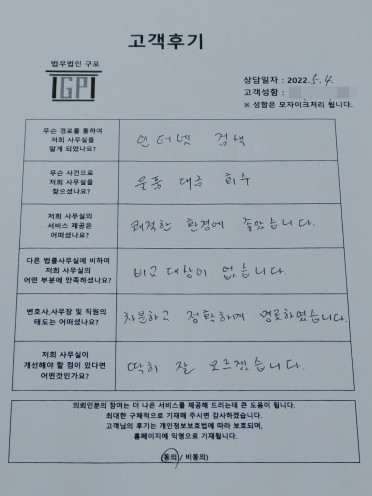 고객후기
법무법인 구포
GP
상담일자 : 2022. 5. 4.
고객성함 :
※ 성함은 모자이크처리 됩니다.
무슨 경로를 통하여
저희 사무실을
알게 되었나요?
인터넷 검색
무슨 사건으로
저희 사무실을
찾으셨나요?
물품 대금 회수
저희 사무실의
서비스 제공은
어떠셨나요?
쾌적한 환경에 좋았습니다.
다른 법률사무실에 비하여
저희 사무실의
어떤 부분에 만족하셨나요?
비교 대상이 없습니다.
변호사,사무장 및 직원의
태도는 어떠셨나요?
차분하고 정확하며 명료하였습니다.
저희 사무실이
개선해야 할 점이 있다면
어떤것인가요?
딱히 잘 모르겠습니다.
의뢰인분의 참여는 더 나은 서비스를 제공해 드리는데 큰 도움이 됩니다.
최대한 구체적으로 기재해 주시면 감사하겠습니다.
고객님의 후기는 개인정보보호법에 따라 보호되며,
홈페이지에 익명으로 기재됩니다.
(동의 / 비동의)